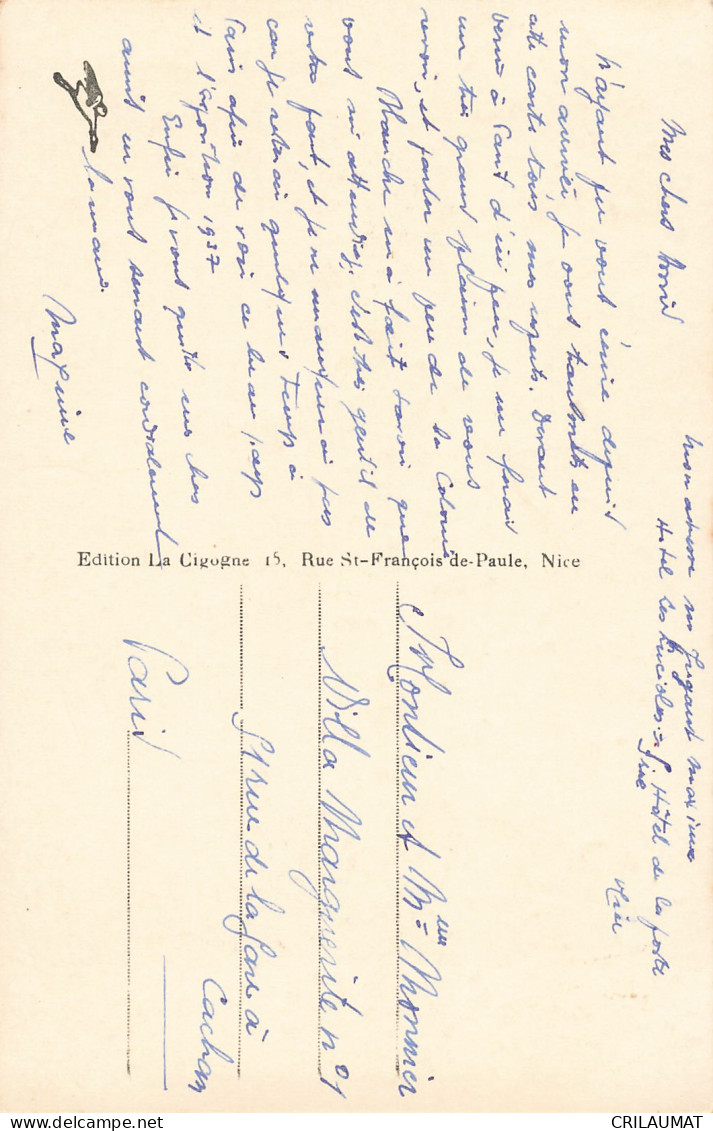 Mes chers Amis
N'ayant pu vous écrire depuis
mon arrivée, je vous transmets en
cette carte tous mes regrets. Devant
venir à Paris d'ici peu, je me ferai
un très grand plaisir de vous
revoir, et parler un peu de la Colonie
Blanche m'a fait savoir que
vous m'attendiez, c'est très gentil de
votre part, et je ne manquerai pas
car je resterai quelques temps à
Paris afin de voir ce beau pays
et l'exposition 1937
Enfin je vous quitte mes chers
amis en vous serrant cordialement
la main.
Maxime
Mon adresse Maxime
Hotel Les Lucioles
Hôtel de la poste
Edition La Cigogne 15, Rue St-François de-Paule, Nice
Monsieur et Mme Monnier
Villa Marguerite n° 1
rue de la Gare à
Cachan
Paris
CRILAUMAT